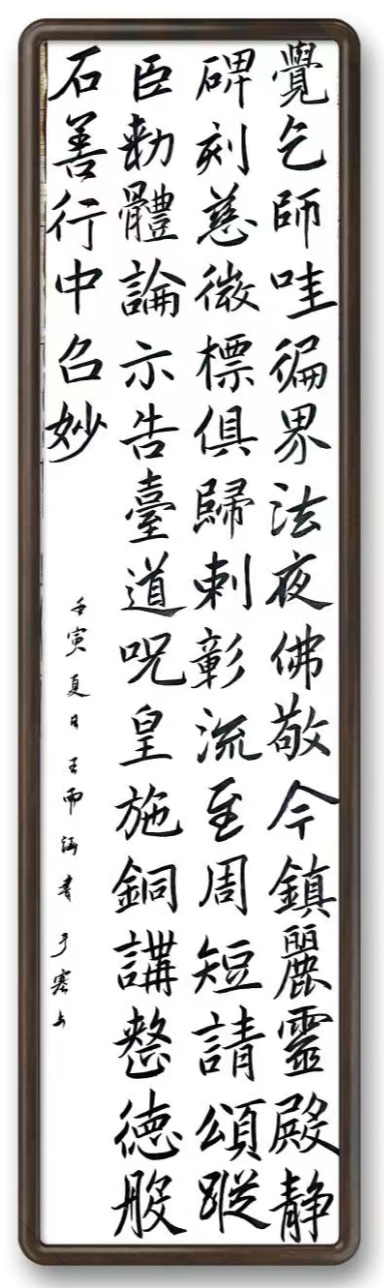 覺乞師哇徧界法夜佛敬今鎮麗靈殿静
碑刻慈微標俱歸刺彰流至周短請頌蹤
臣勅體論示告臺道呪皇施銅講整德般
石善行中召妙
壬寅夏日王雨